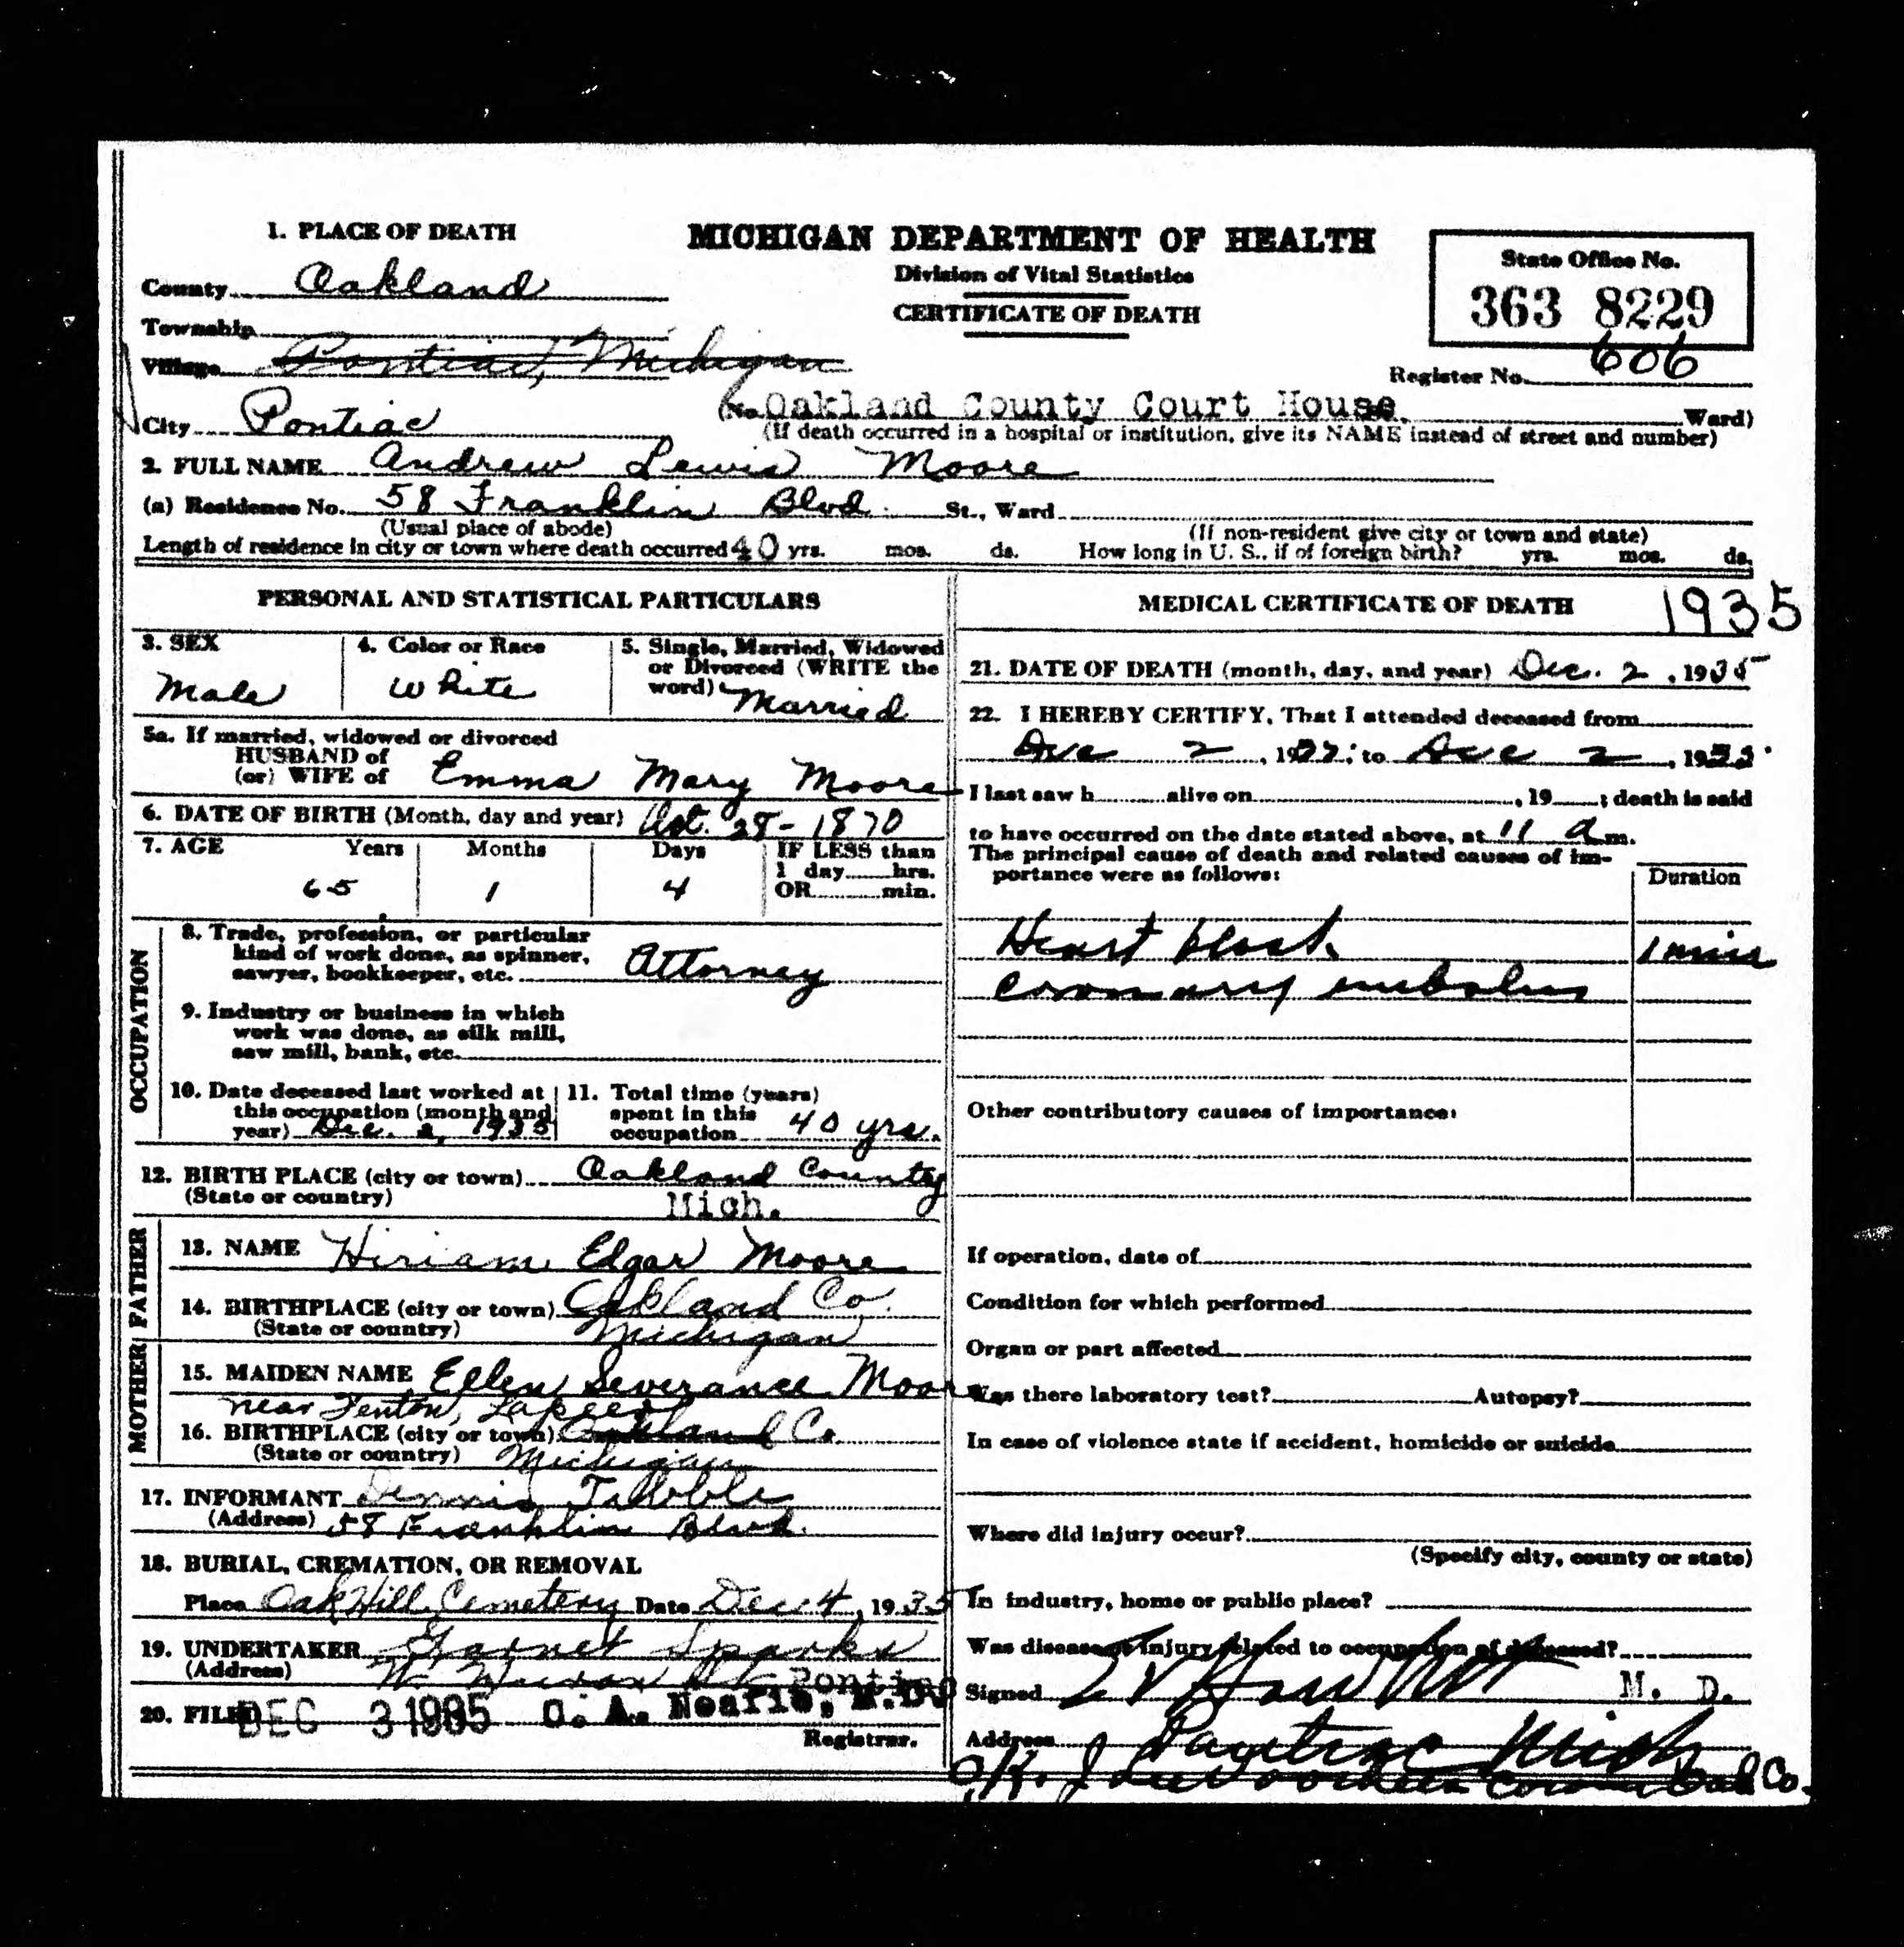 1. PLACE OF DEATH
MICHIGAN DEPARTMENT OF HEALTH
Division of Vital Statistics
CERTIFICATE OF DEATH
State Office No.
363 8229
Register No. 606
County Oakland
Township
Village Pontiac, Michigan
City Pontiac (No. Oakland County Court House. Ward)
(If death occurred in a hospital or institution, give its NAME instead of street and number)
2. FULL NAME Andrew Lewis Moore
(a) Residence No. 58 Franklin Blvd. St., Ward
(Usual place of abode) (If non-resident give city or town and state)
Length of residence in city or town where death occurred 40 yrs. mos. ds. How long in U. S., if of foreign birth? yrs. mos. ds.
PERSONAL AND STATISTICAL PARTICULARS
3. SEX
Male
4. Color or Race
White
5. Single, Married, Widowed
or Divorced (WRITE the
word) Married
5a. If married, widowed or divorced
HUSBAND of
(or) WIFE of Emma Mary Moore
6. DATE OF BIRTH (Month, day and year) Oct. 28-1870
7. AGE Years Months Days IF LESS than
1 day hrs.
OR min.
65 1 4
OCCUPATION
8. Trade, profession, or particular
kind of work done, as spinner,
sawyer, bookkeeper, etc. Attorney
9. Industry or business in which
work was done, as silk mill,
saw mill, bank, etc.
10. Date deceased last worked at
this occupation (month and
year) Dec. 2, 1935
11. Total time (years)
spent in this
occupation 40 yrs.
12. BIRTH PLACE (city or town) Oakland County
(State or country) Mich.
FATHER
13. NAME Hiriam Edgar Moore
14. BIRTHPLACE (city or town) Oakland Co.
(State or country) Michigan
MOTHER
15. MAIDEN NAME Ellen Severance Moore
near Fenton, Lapeer
16. BIRTHPLACE (city or town) Oakland Co.
(State or country) Michigan
17. INFORMANT Dennis
(Address) 58 Franklin Blvd.
18. BURIAL, CREMATION, OR REMOVAL
Place Oak Hill Cemetery Date Dec 4, 1935
19. UNDERTAKER Garnet Sparks
(Address) W. St. Pontiac
20. FILED DEC 3 1935 C. A. Neafie, M.D.
Registrar.
MEDICAL CERTIFICATE OF DEATH 1935
21. DATE OF DEATH (month, day, and year) Dec. 2, 1935
22. I HEREBY CERTIFY, That I attended deceased from
Dec 2, 19 ; to Dec 2, 1935
I last saw h alive on , 19 ; death is said
to have occurred on the date stated above, at 11 a m.
The principal cause of death and related causes of im-
portance were as follows:
Duration
Heart block 1 min
coronary embolus
Other contributory causes of importance:
If operation, date of
Condition for which performed
Organ or part affected
Was there laboratory test? Autopsy?
In case of violence state if accident, homicide or suicide
Where did injury occur?
(Specify city, county or state)
In industry, home or public place?
Was disease or injury related to occupation of deceased?
Signed M. D.
Address Pontiac Mich
O.K. J Lee Voorhees Coroner Oak Co.